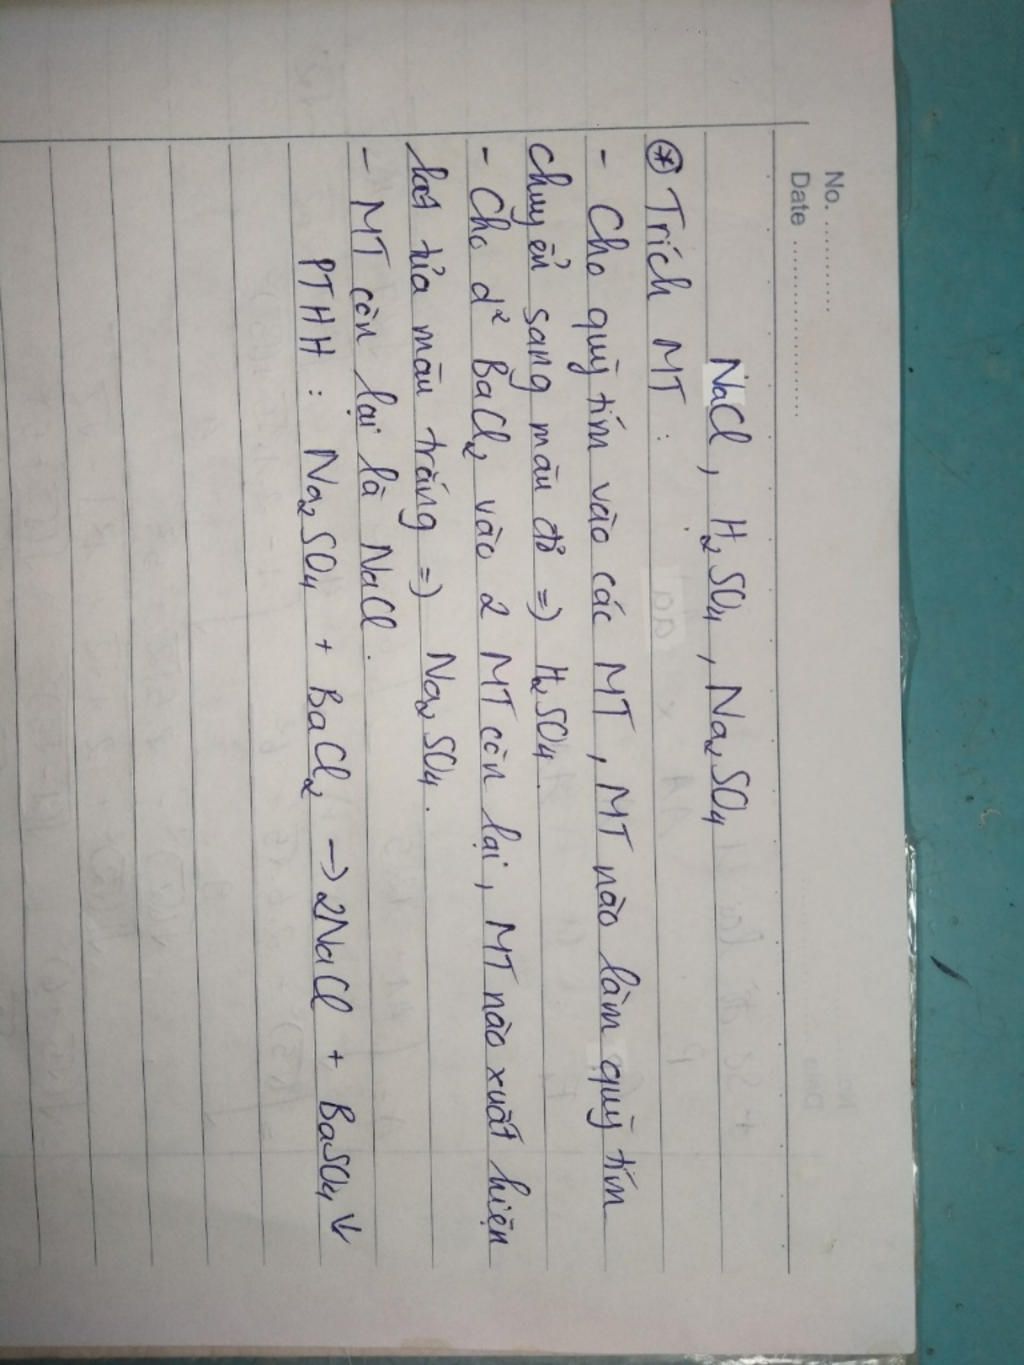 No. ............
Date .....................
NaCl, H₂SO₄, Na₂SO₄
⊛ Trích MT :
- Cho quỳ tím vào các MT, MT nào làm quỳ tím
chuyển sang màu đỏ => H₂SO₄.
- Cho d² BaCl₂ vào 2 MT còn lại, MT nào xuất hiện
kết tủa màu trắng => Na₂SO₄.
- MT còn lại là NaCl.
PTHH : Na₂SO₄ + BaCl₂ → 2NaCl + BaSO₄ ↓